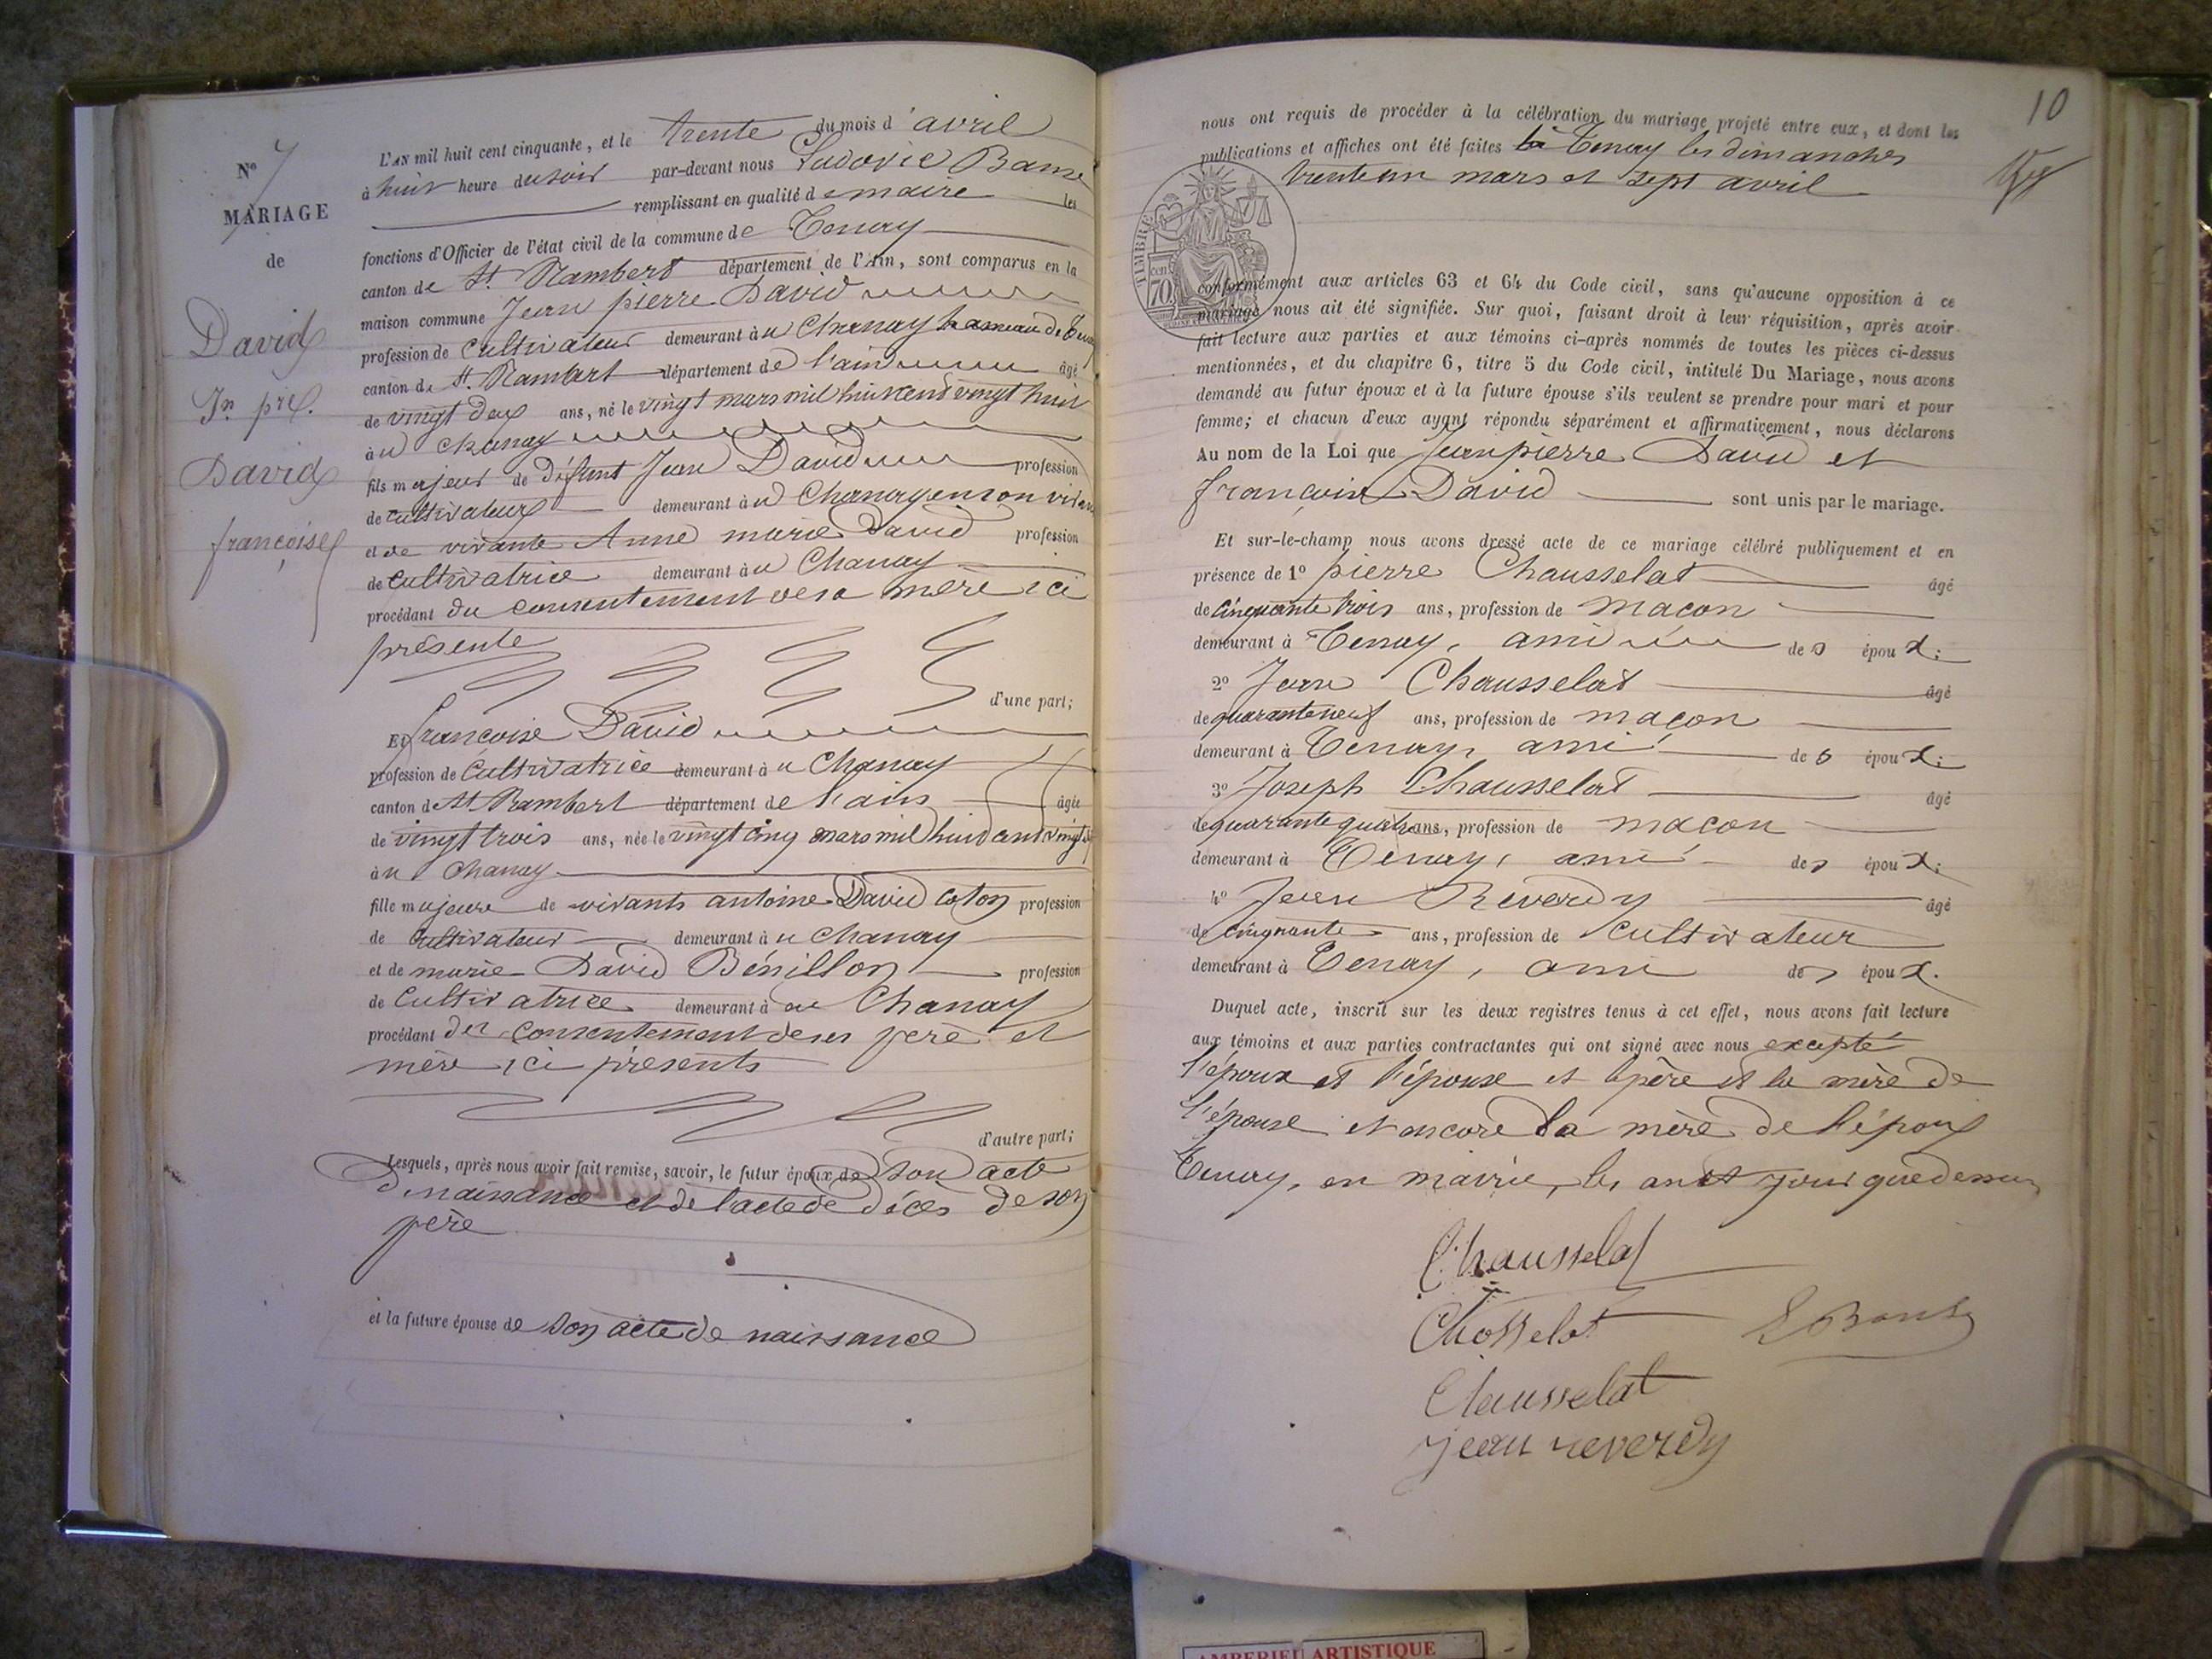 N° 7
MARIAGE
de
David
Jn pre.
David
françoise
L'AN mil huit cent cinquante, et le trente du mois d'avril
à huit heure du soir par-devant nous Ludovic
remplissant en qualité de maire les
fonctions d'Officier de l'état civil de la commune de Tenay
canton de St. Rambert département de l'Ain, sont comparus en la
maison commune Jean pierre David
profession de cultivateur demeurant à u Chanay hameau de Tenay
canton de St. Rambert département de l'ain âgé
de vingt deux ans, né le vingt mars mil huit cent vingt huit
à u chanay
fils majeur de défunt Jean David profession
de cultivateur demeurant à u Chanay en son vivant
et de vivante Anne marie David profession
de cultivatrice demeurant à u Chanay
procédant du consentement de sa mère ici
présente
d'une part;
Et françoise David
profession de cultivatrice demeurant à u Chanay
canton de St Rambert département de l'ain âgée
de vingt trois ans, née le vingt cinq mars mil huit cent vingt
à u Chanay
fille majeure de vivants antoine David coton profession
de cultivateur demeurant à u Chanay
et de marie David Bénillon profession
de cultivatrice demeurant à au Chanay
procédant du consentement de ses père et
mère ici présents
d'autre part;
Lesquels, après nous avoir fait remise, savoir, le futur époux de son acte
de naissance et de l'acte de décès de son
père
et la future épouse de son acte de naissance
10
nous ont requis de procéder à la célébration du mariage projeté entre eux, et dont les
publications et affiches ont été faites à Tenay les dimanches
trente un mars et sept avril
TIMBRE
70 cen
conformément aux articles 63 et 64 du Code civil, sans qu'aucune opposition à ce
mariage nous ait été signifiée. Sur quoi, faisant droit à leur réquisition, après avoir
fait lecture aux parties et aux témoins ci-après nommés de toutes les pièces ci-dessus
mentionnées, et du chapitre 6, titre 5 du Code civil, intitulé Du Mariage, nous avons
demandé au futur époux et à la future épouse s'ils veulent se prendre pour mari et pour
femme; et chacun d'eux ayant répondu séparément et affirmativement, nous déclarons
Au nom de la Loi que Jean pierre David et
françoise David sont unis par le mariage.
Et sur-le-champ nous avons dressé acte de ce mariage célébré publiquement et en
présence de 1° pierre Chausselat âgé
de cinquante trois ans, profession de macon
demeurant à Tenay, ami des époux;
2° Jean Chausselat âgé
de quarante neuf ans, profession de maçon
demeurant à Tenay, ami des époux;
3° Joseph Chausselat âgé
de quarante quatre ans, profession de macon
demeurant à Tenay, ami des époux;
4° Jean Reverdy âgé
de cinquante ans, profession de cultivateur
demeurant à Tenay, ami des époux.
Duquel acte, inscrit sur les deux registres tenus à cet effet, nous avons fait lecture
aux témoins et aux parties contractantes qui ont signé avec nous excepté
l'époux et l'épouse et le père et la mère de
l'épouse et encore la mère de l'époux
Tenay, en mairie, les an et jour que dessus
Chausselat
Chosselat
Chausselat
jean reverdy
AMBERIEU ARTISTIQUE